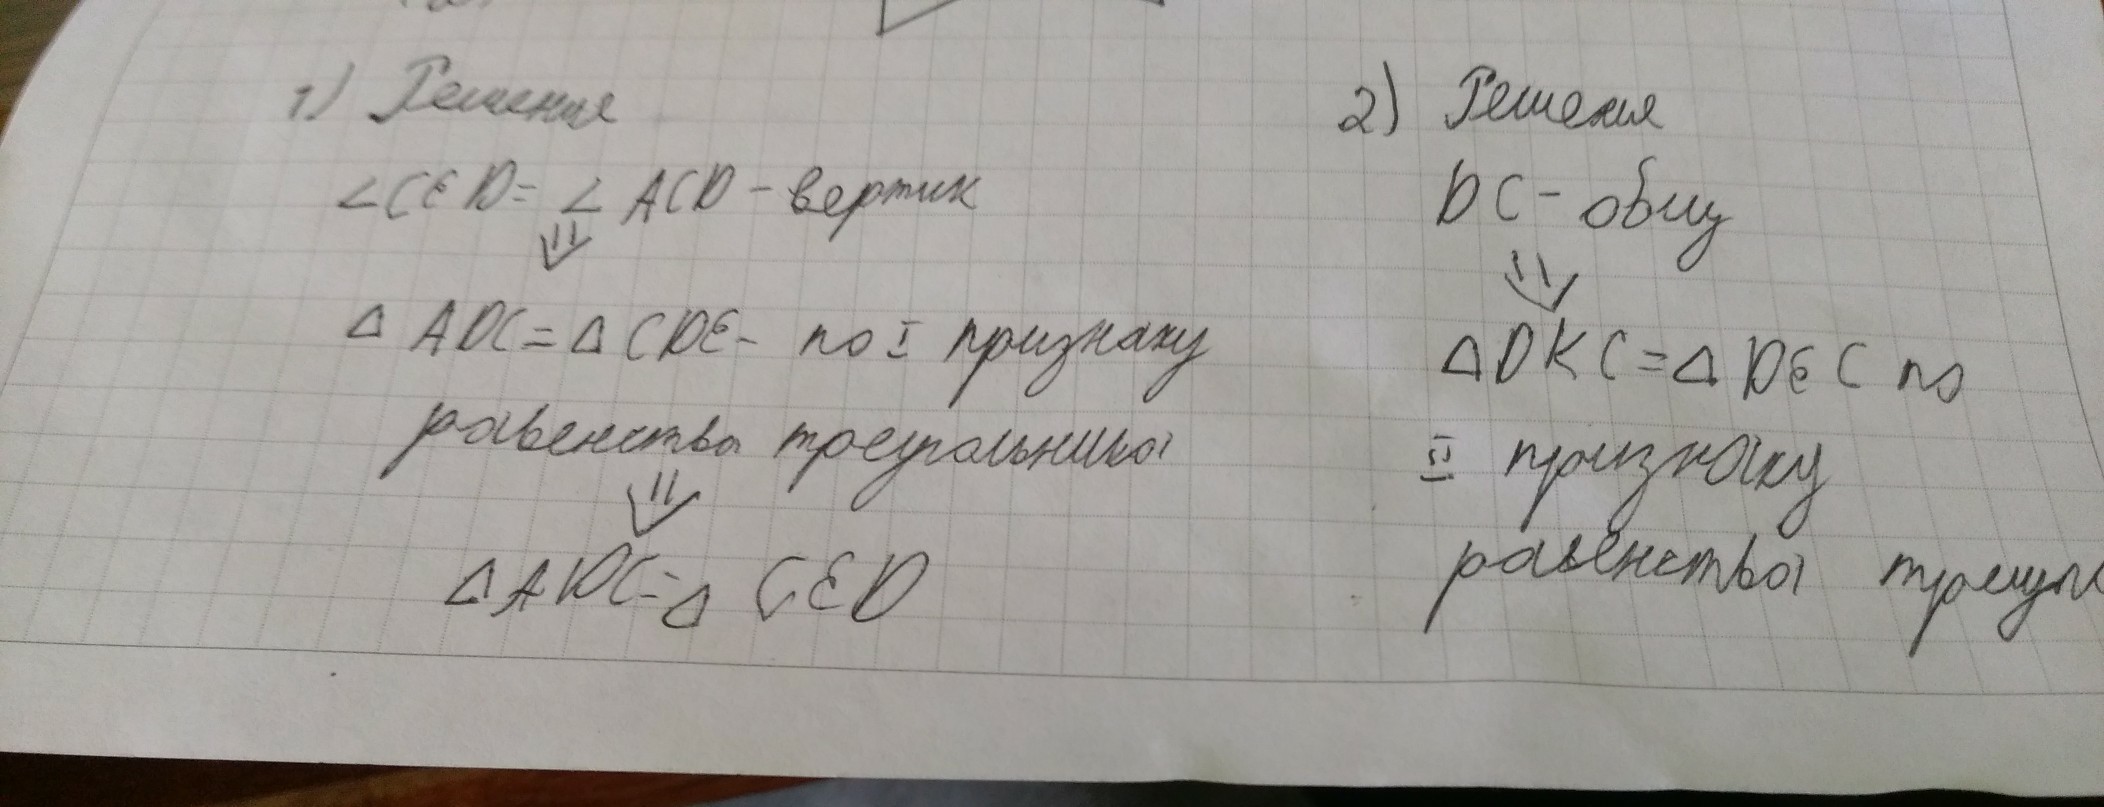 1) Решения
∠CED = ∠ ACD - вертик
⇓
Δ ADC = Δ CDE - по I признаку
равенства треугольника
⇓
Δ ADC = Δ CED
2) Решения
DC - общ
⇓
Δ DKC = Δ DEC по
II признаку
равенства треуг